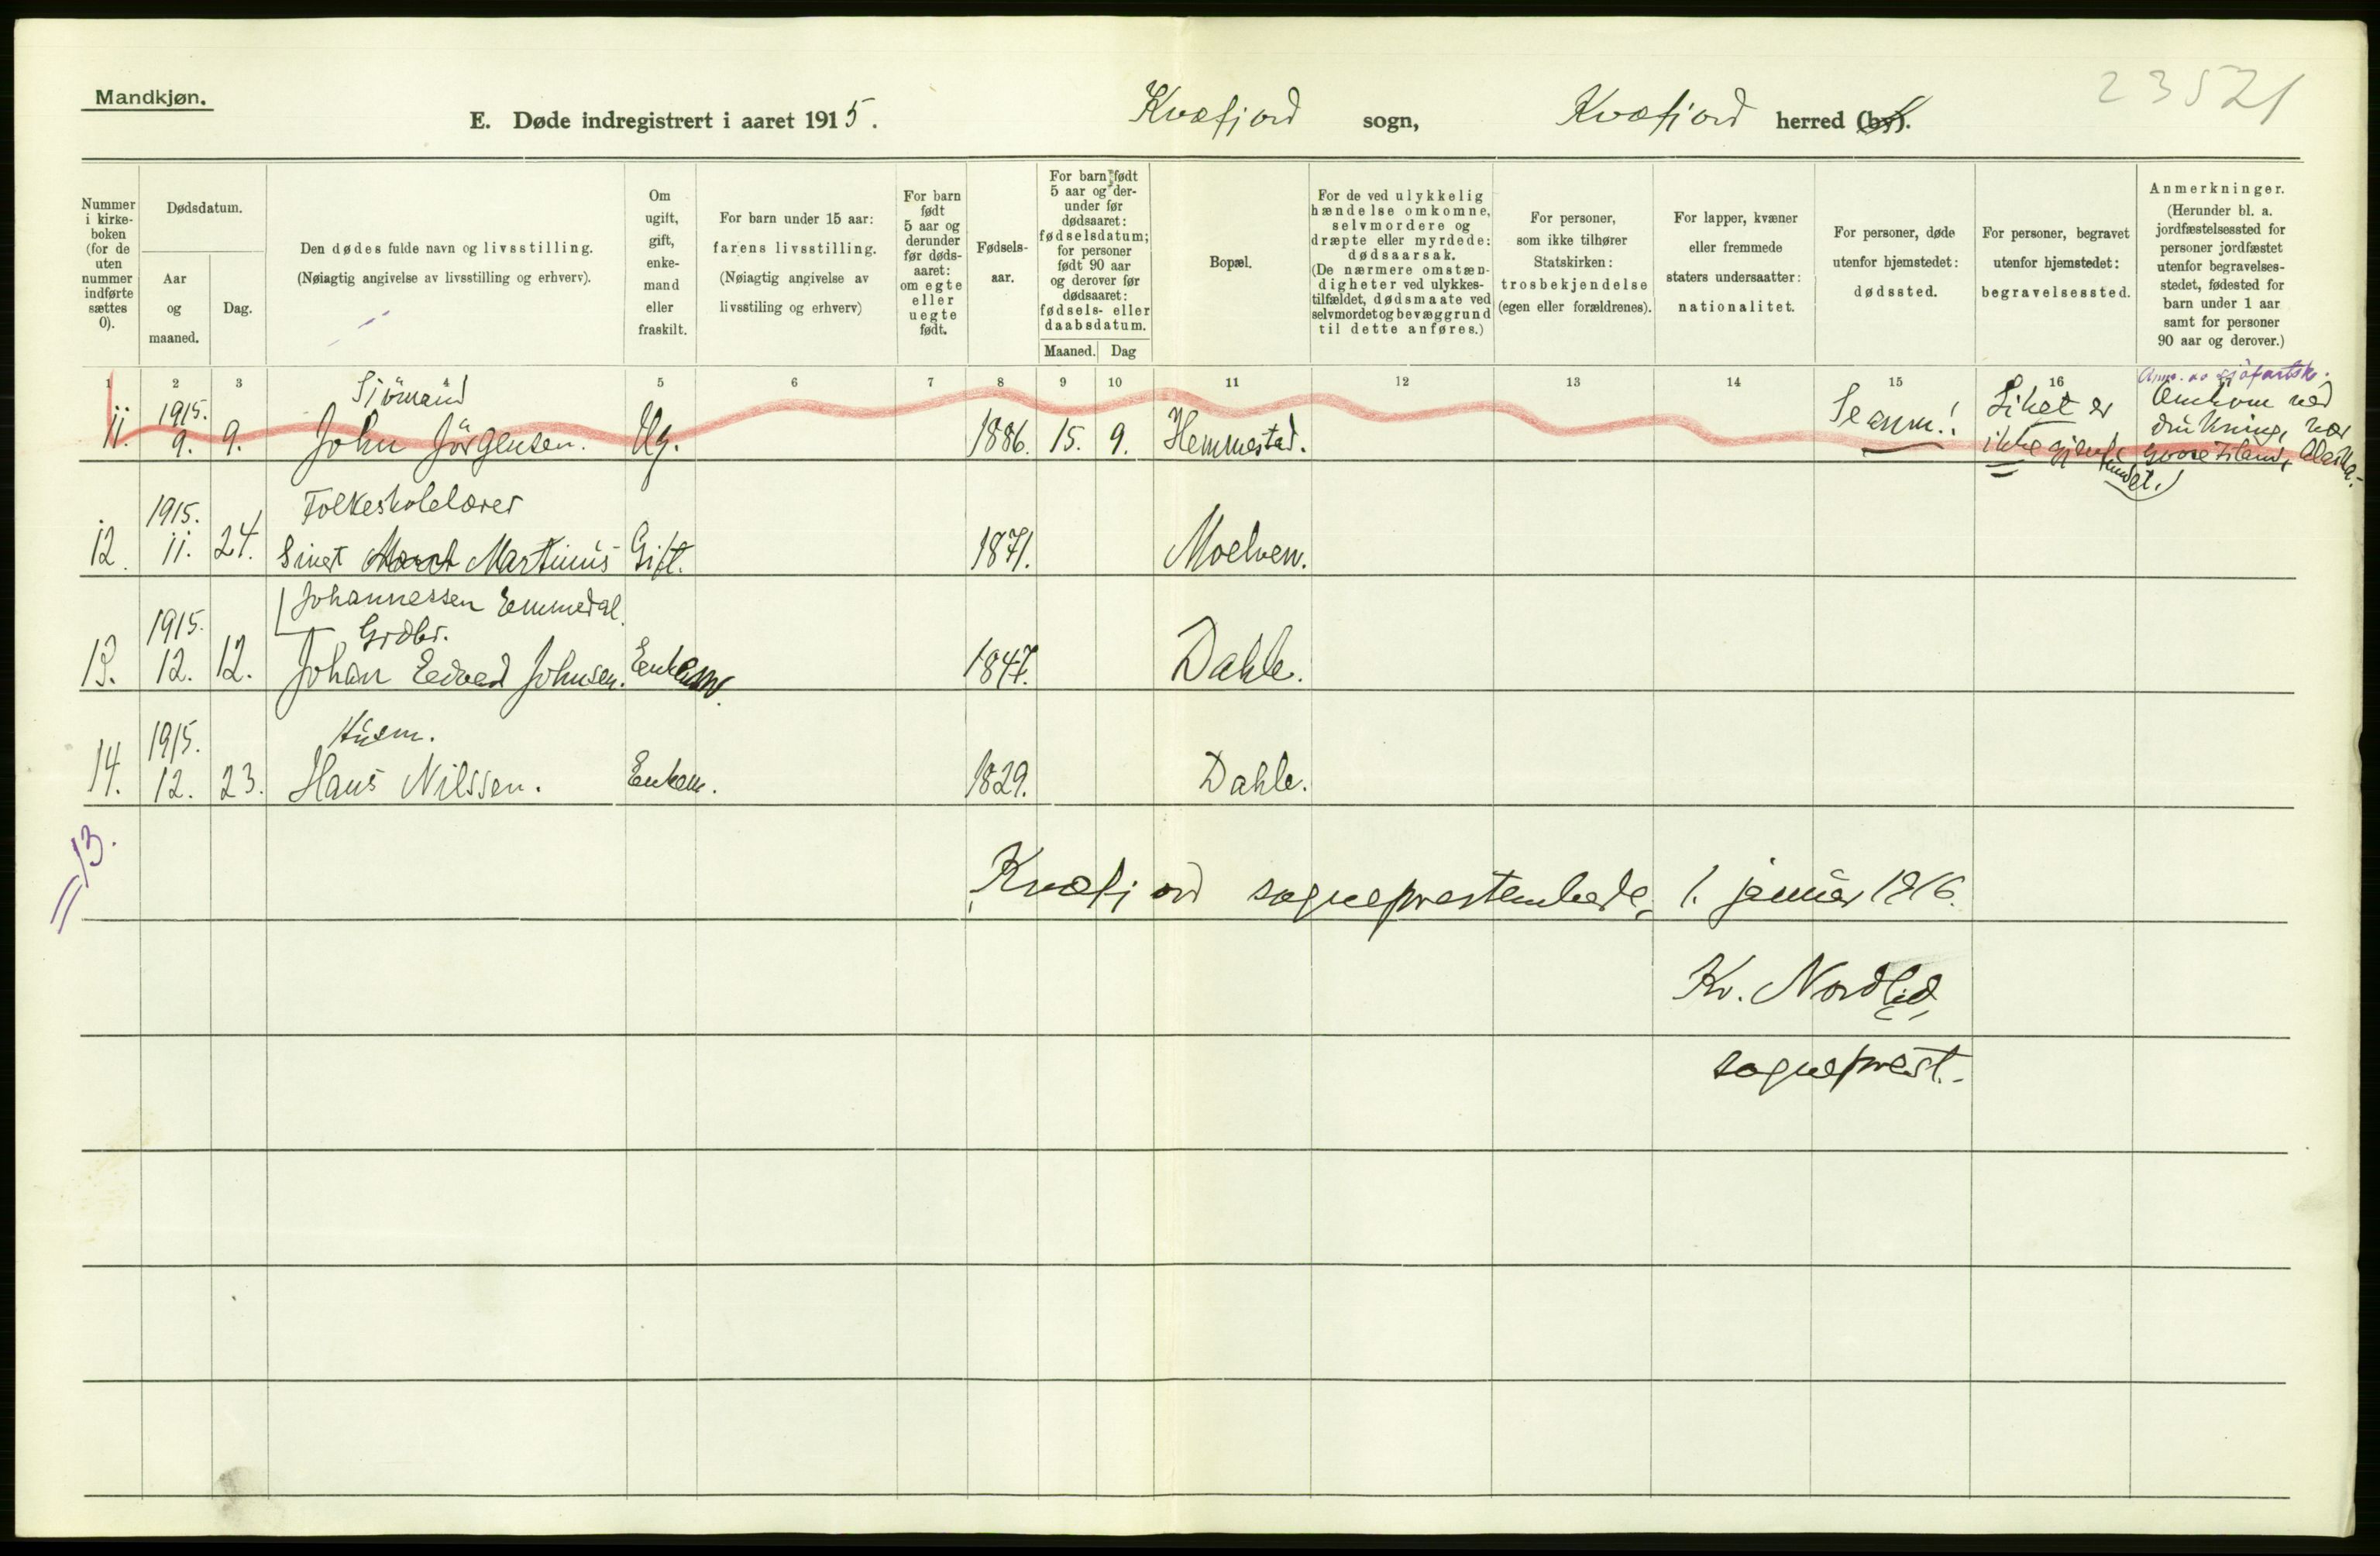 Mandkjøn.
23521
E. Døde indregistrert i aaret 1915. Kvæfjord sogn, Kvæfjord herred (by).
Nummer i kirke-boken (for de uten nummer indførte sættes 0).
Dødsdatum.
Aar og maaned.
Dag.
Den dødes fulde navn og livsstilling.
(Nøiagtig angivelse av livsstilling og erhverv).
Om ugift, gift, enke-mand eller fraskilt.
For barn under 15 aar:
farens livsstilling.
(Nøiagtig angivelse av
livsstiling og erhverv)
For barn født 5 aar og derunder før døds-aaret: om egte eller uegte født.
Fødsels-aar.
For barn født 5 aar og der-under før dødsaaret: fødselsdatum; for personer født 90 aar og derover før dødsaaret: fødsels- eller daabsdatum.
Maaned. Dag
Bopæl.
For de ved ulykkelig hændelse omkomne, selvmordere og dræpte eller myrdede: dødsaarsak.
(De nærmere omstæn-digheter ved ulykkes-tilfældet, dødsmaate ved selvmordet og bevæggrund til dette anføres.)
For personer, som ikke tilhører Statskirken: trosbekjendelse (egen eller forældrenes).
For lapper, kvæner eller fremmede staters undersaatter: nationalitet.
For personer, døde utenfor hjemstedet: dødssted.
For personer, begravet utenfor hjemstedet: begravelsessted.
Anmerkninger.
(Herunder bl. a. jordfæstelsessted for personer jordfæstet utenfor begravelses-stedet, fødested for barn under 1 aar samt for personer 90 aar og derover.)
1 2 3 4 5 6 7 8 9 10 11 12 13 14 15 16
Sjömand
11. 1915. 9. 9. John Jörgensen. Ug. 1886. 15. 9. Hemmestad. Se anm.! Liket er ikke gjenfundet. Omkom ved drukning, nær Goose Island, Alaska.
Folkeskolelærer
12. 1915. 11. 24. Sivert Martinus Gift. 1871. Moelven.
Johannessen Emmedal.
Grdbr.
13. 1915. 12. 12. Johan Edvard Johnsen. Enkem. 1847. Dahle.
Husm.
14. 1915. 12. 23. Hans Nilssen. Enkem. 1829. Dahle.
= 13.
Kvæfjord sogneprestembede, 1. januar 1916.
Kv. Nordlid,
sogneprest.